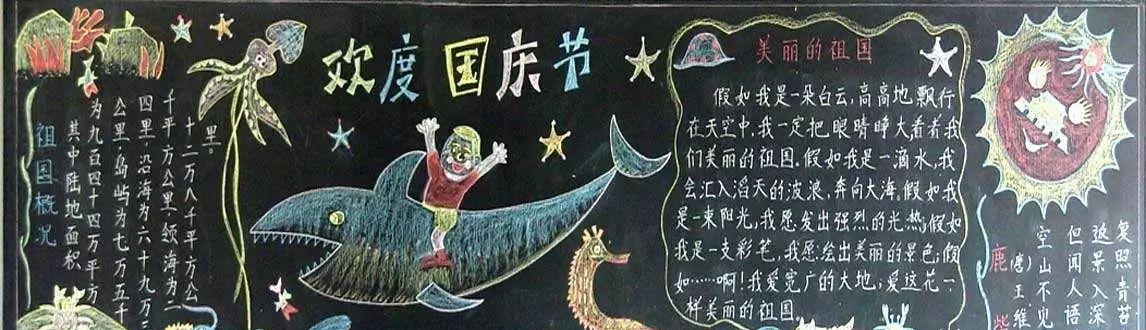 欢度国庆节
祖国概况
其中陆地面积
为九百四十四万平方
公里，岛屿为七万五千
四里，沿海为六十九万三
千平方公里，领海为二
十二万八千平方公
里。
美丽的祖国
假如我是一朵白云，高高地飘行
在天空中，我一定把眼睛睁大看看我
们美丽的祖国。假如我是一滴水，我
会汇入滔天的波浪，奔向大海。假如我
是一束阳光，我愿发出强烈的光热；假如
我是一支彩笔，我愿绘出美丽的景色；假
如……啊！我爱宽广的大地，爱这花一
样美丽的祖国。
鹿柴
（唐）王维
空山不见
但闻人语
返景入深
复照青苔